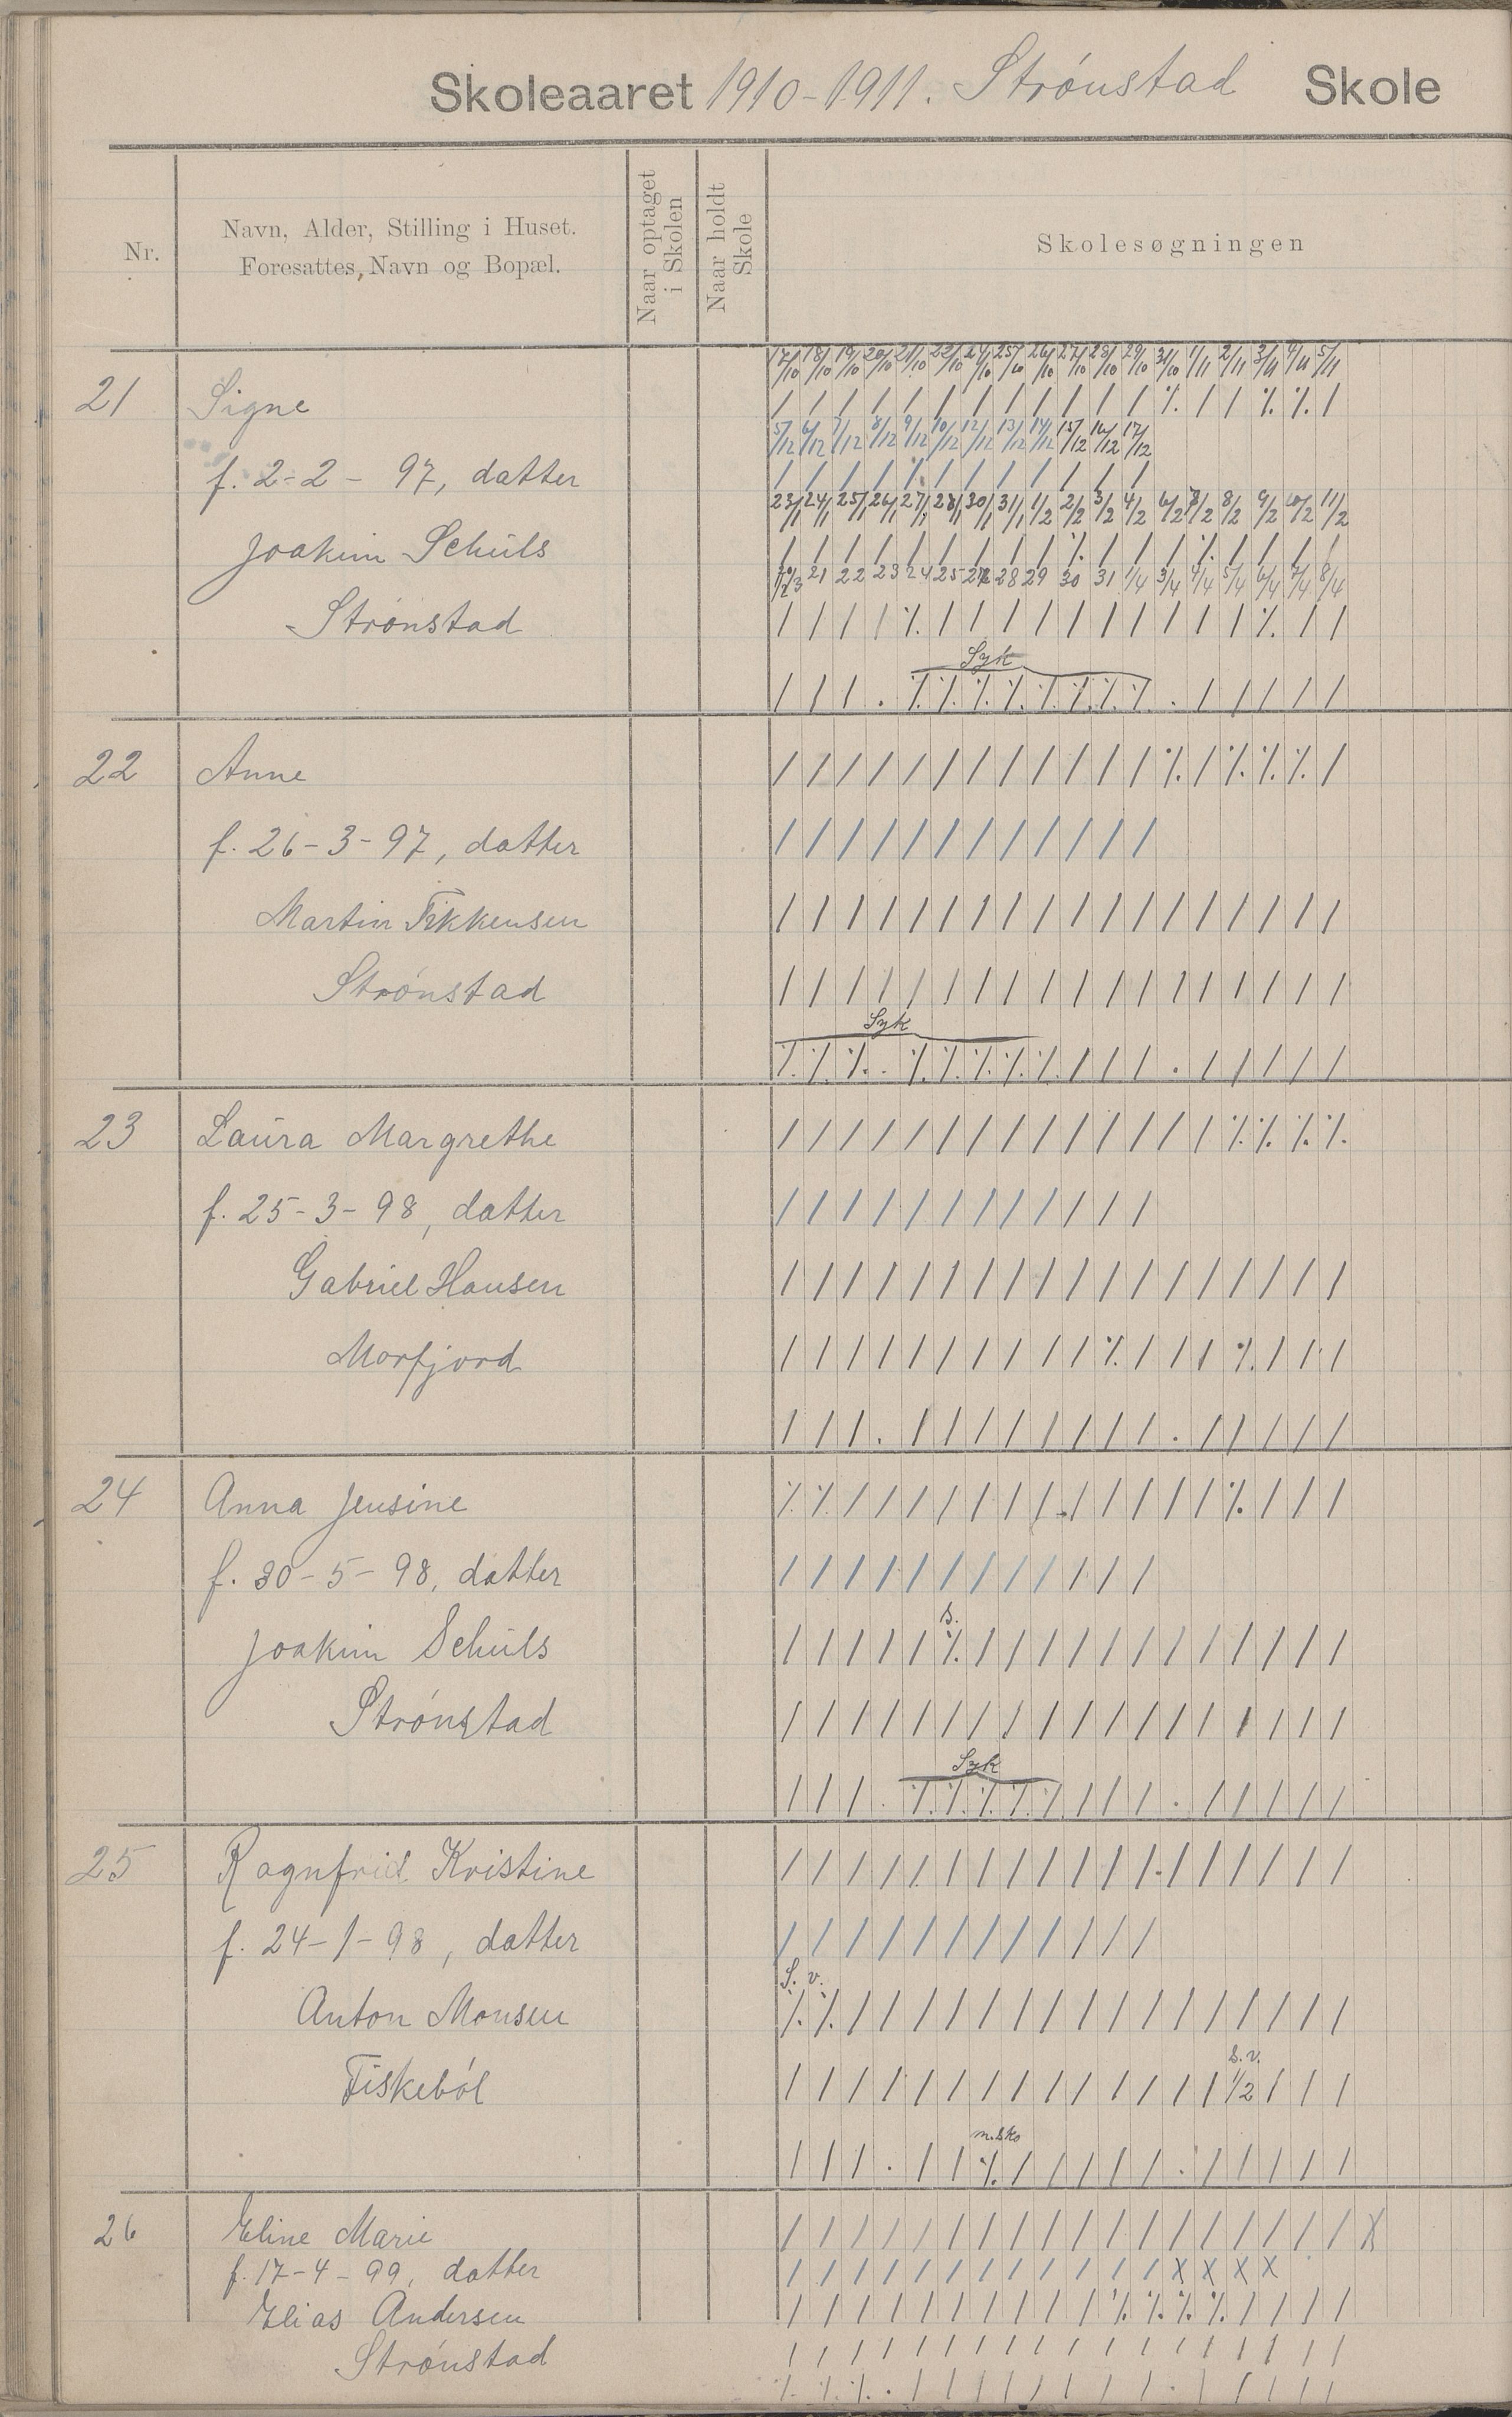 Skoleaaret 1910-1911. Strønstad Skole
Nr.
Navn, Alder, Stilling i Huset.
Foresattes, Navn og Bopæl.
Naar optaget
i Skolen
Naar holdt
Skole
Skolesøgningen
17/10 18/10 19/10 20/10 21/10 22/10 24/10 25/10 26/10 27/10 28/10 29/10 31/10 1/11 2/11 3/11 4/11 5/11
21 Signe
5/12 6/12 7/12 8/12 9/12 10/12 12/12 13/12 14/12 15/12 16/12 17/12
f. 2-2-97, datter
23/1 24/1 25/1 26/1 27/1 28/1 30/1 31/1 1/2 2/2 3/2 4/2 6/2 7/2 8/2 9/2 10/2 11/2
Joakim Schuls
21 22 23 24 25 27 28 29 30 31 1/4 3/4 4/4 5/4 6/4 7/4 8/4
Strønstad
Syk
22 Anne
f. 26-3-97, datter
Martin Fikkensen
Strønstad
Syk
23 Laura Margrethe
f. 25-3-98, datter
Gabriel Hansen
Morfjord
24 Anna Jensine
f. 30-5-98, datter
s.
Joakim Schuls
Strønstad
Syk
25 Ragnfrid Kristine
f. 24-1-98, datter
S. v.
Anton Monsen
s.v.
Fiskeból 1/2
m.sko
26 Eline Marie
f. 17-4-99, datter X X X X
Elias Andersen
Strønstad